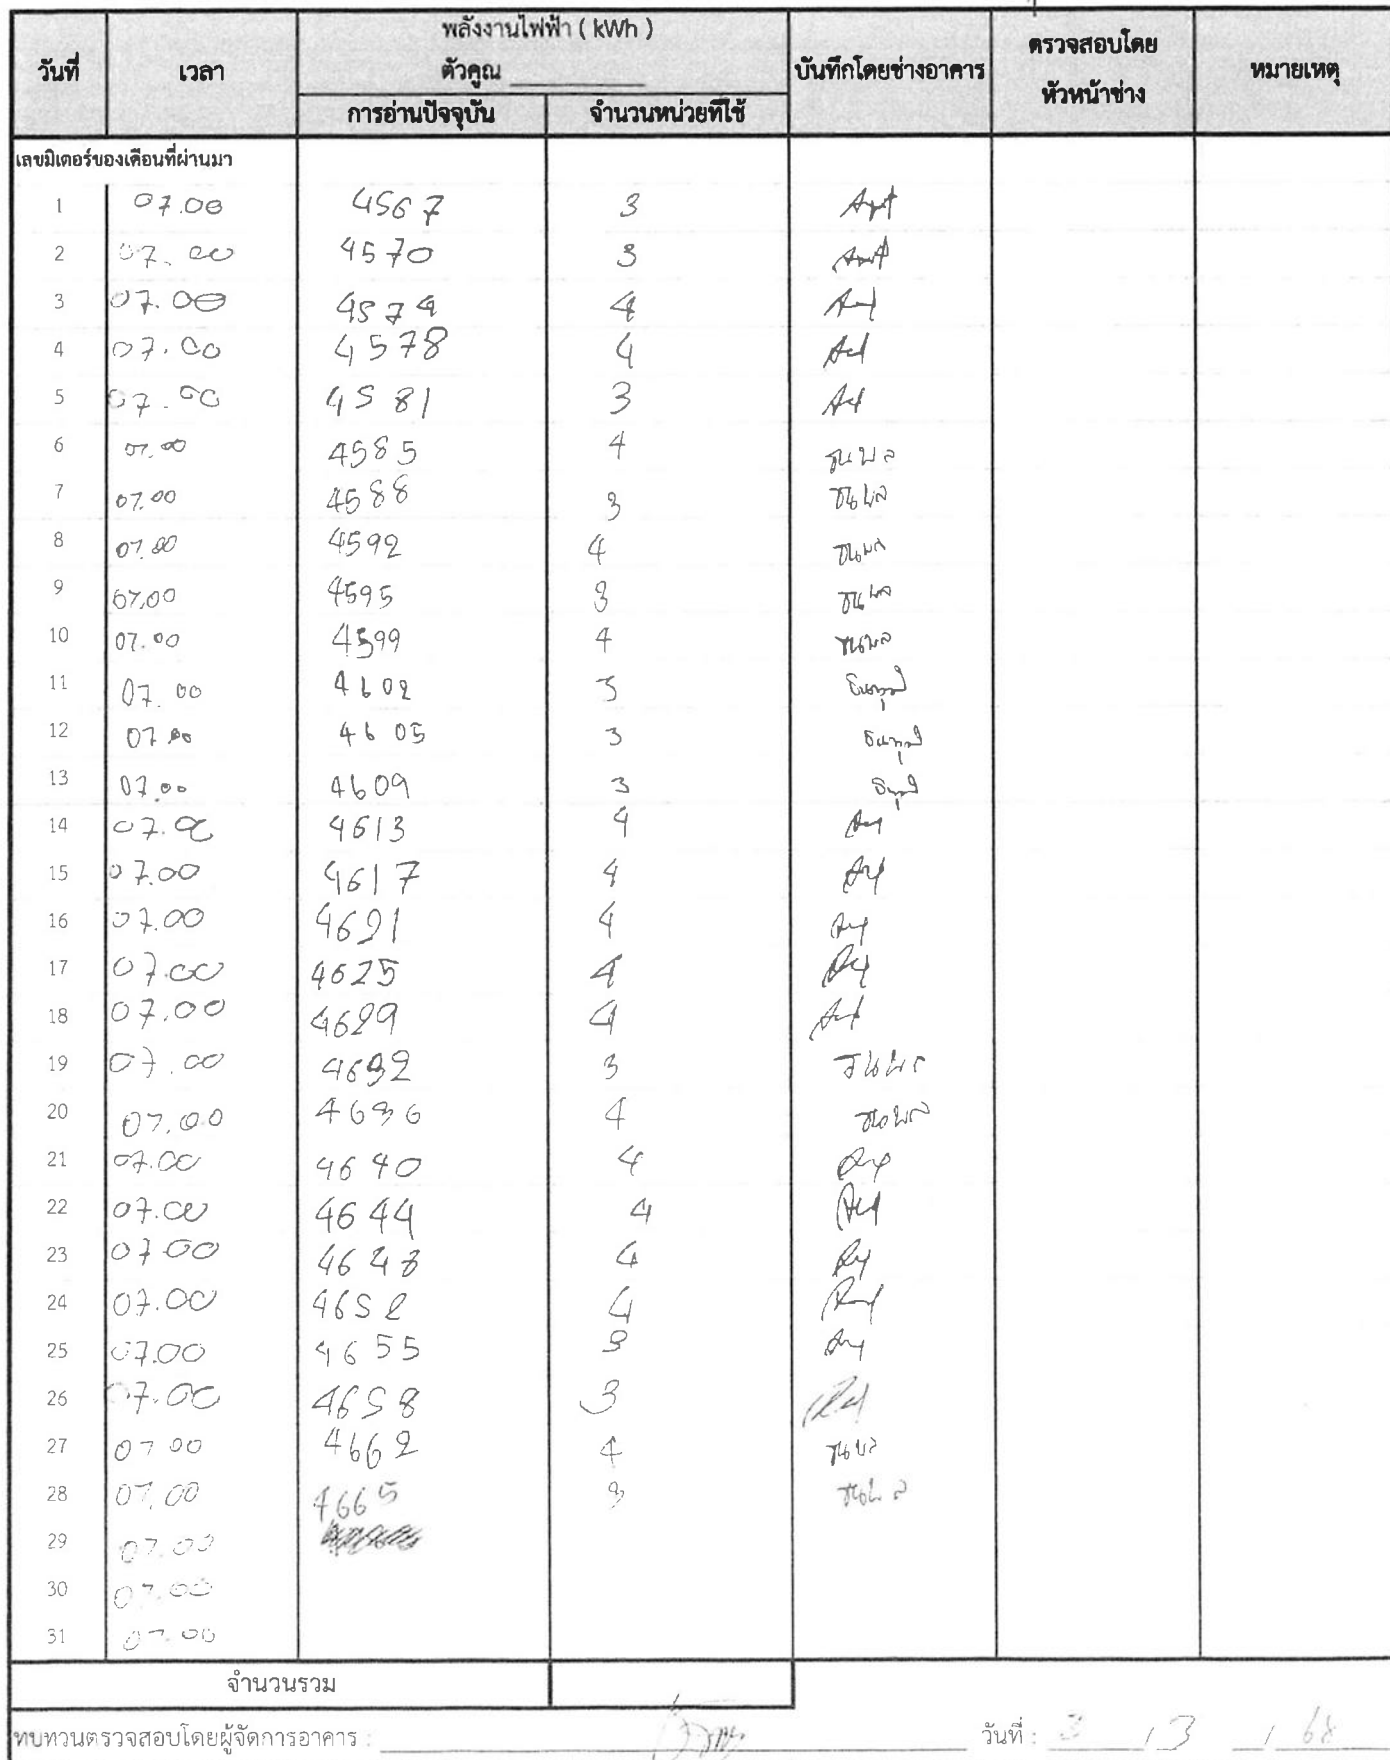 พลังงานไฟฟ้า ( kWh )
วันที่ เวลา ตัวคูณ บันทึกโดยช่างอาคาร ตรวจสอบโดย หัวหน้าช่าง หมายเหตุ
การอ่านปัจจุบัน จำนวนหน่วยที่ใช้
เลขมิเตอร์ของเดือนที่ผ่านมา
1 07.00 4567 3
2 07.00 4570 3
3 07.00 4574 4
4 07.00 4578 4
5 07.00 4581 3
6 07.00 4585 4 ธนพล
7 07.00 4588 3 ธนพล
8 07.00 4592 4 ธนพล
9 07.00 4595 3 ธนพล
10 07.00 4599 4 ธนพล
11 07.00 4602 3
12 07.00 4605 3
13 07.00 4609 3
14 07.00 4613 4
15 07.00 4617 4
16 07.00 4621 4
17 07.00 4625 4
18 07.00 4629 4
19 07.00 4632 3 ธนพล
20 07.00 4636 4 ธนพล
21 07.00 4640 4
22 07.00 4644 4
23 07.00 4648 4
24 07.00 4652 4
25 07.00 4655 3
26 07.00 4658 3
27 07 00 4662 4 ธนพล
28 07.00 4665 3 ธนพล
29 07.00
30 07.00
31 07.00
จำนวนรวม
ทบทวนตรวจสอบโดยผู้จัดการอาคาร : วันที่ : 3 / 3 / 68